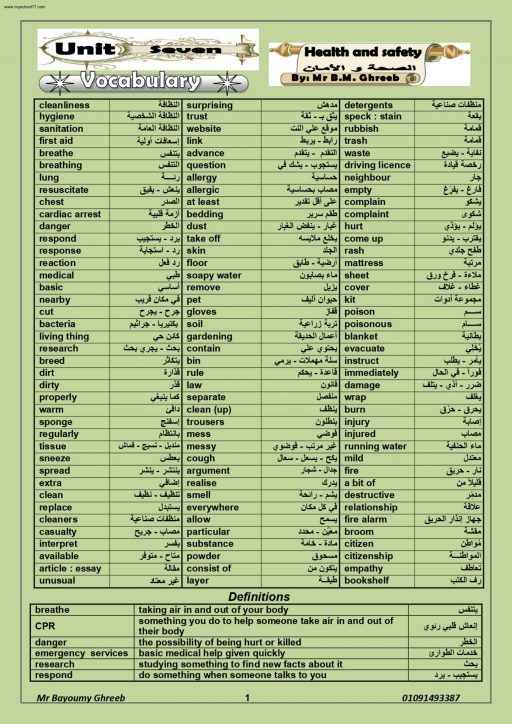 www.myschool77.com
Unit Seven
Health and safety
الصحة و الأمان
Vocabulary
By: Mr B.M. Ghreeb
cleanliness النظافة surprising مدهش detergents منظفات صناعية
hygiene النظافة الشخصية trust يثق بـ - ثقة speck : stain بقعة
sanitation النظافة العامة website موقع علي النت rubbish قمامة
first aid إسعافات أولية link رابط - يربط trash قمامة
breathe يتنفس advance التقدم - يتقدم waste نفاية - يضيع
breathing التنفس question يستجوب - يشك في driving licence رخصة قيادة
lung رئـــة allergy حساسية neighbour جار
resuscitate ينعش - يفيق allergic مصاب بحساسية empty فارغ - يفرّغ
chest الصدر at least علي أقل تقدير complain يشكو
cardiac arrest أزمة قلبية bedding طقم سرير complaint شكوى
danger الخطر dust غبار - ينفض الغبار hurt يؤلم - يؤذي
respond يرد - يستجيب take off يخلع ملابسه come up يقترب - يدنو
response رد - استجابة skin الجلد rash طفح جلدي
reaction رد فعل floor أرضية - طابق mattress مرتبة
medical طبي soapy water ماء بصابون sheet ملاءة - فرخ ورق
basic أساسي remove يزيل cover غطاء - غلاف
nearby في مكان قريب pet حيوان أليف kit مجموعة أدوات
cut جرح - يجرح gloves قفاز poison ســـم
bacteria بكتيريا - جراثيم soil تربة زراعية poisonous ســـام
living thing كائن حي gardening أعمال الحديقة blanket بطانية
research بحث - يجري بحث contain يحتوي علي evacuate يُخلي
breed يتكاثر bin سلة مهملات - يرمي instruct يأمر - يطلب
dirt قذارة rule قاعدة - يحكم immediately فوراً - في الحال
dirty قذر law قانون damage ضرر - أذي - يتلف
properly كما ينبغي separate منفصل wrap يغلف
warm دافئ clean (up) ينظف burn يحرق - حرْق
sponge إسفنج trousers بنطلون injury إصابة
regularly بانتظام mess فوضي injured مصاب
tissue منديل - نسيج - قماش messy غير مرتب - فوضوي running water ماء الحنفية
sneeze يعطس cough يكح - يسعل - سعال mild معتدل
spread ينتشر - ينشر argument جدال - شجار fire نار - حريق
extra إضافي realise يدرك a bit of قليلاً من
clean تنظيف - نظيف smell يشم - رائحة destructive مدمّر
replace يستبدل everywhere في كل مكان relationship علاقة
cleaners منظفات صناعية allow يسمح fire alarm جهاز إنذار الحريق
casualty مصاب - جريح particular معيّن - محدد broom مقشة
interpret يفسر substance مادة - خامة citizen مُواطِن
available متاح - متوفر powder مسحوق citizenship المواطنـــة
article : essay مقالة consist of يتكون من empathy تعاطف
unusual غير معتاد layer طبقــة bookshelf رف الكتب
Definitions
breathe taking air in and out of your body يتنفس
CPR something you do to help someone take air in and out of their body إنعاش قلبي رئوي
danger the possibility of being hurt or killed الخطر
emergency services basic medical help given quickly خدمات الطوارئ
research studying something to find new facts about it بحث
respond do something when someone talks to you يستجيب - يرد
Mr Bayoumy Ghreeb 1 01091493387